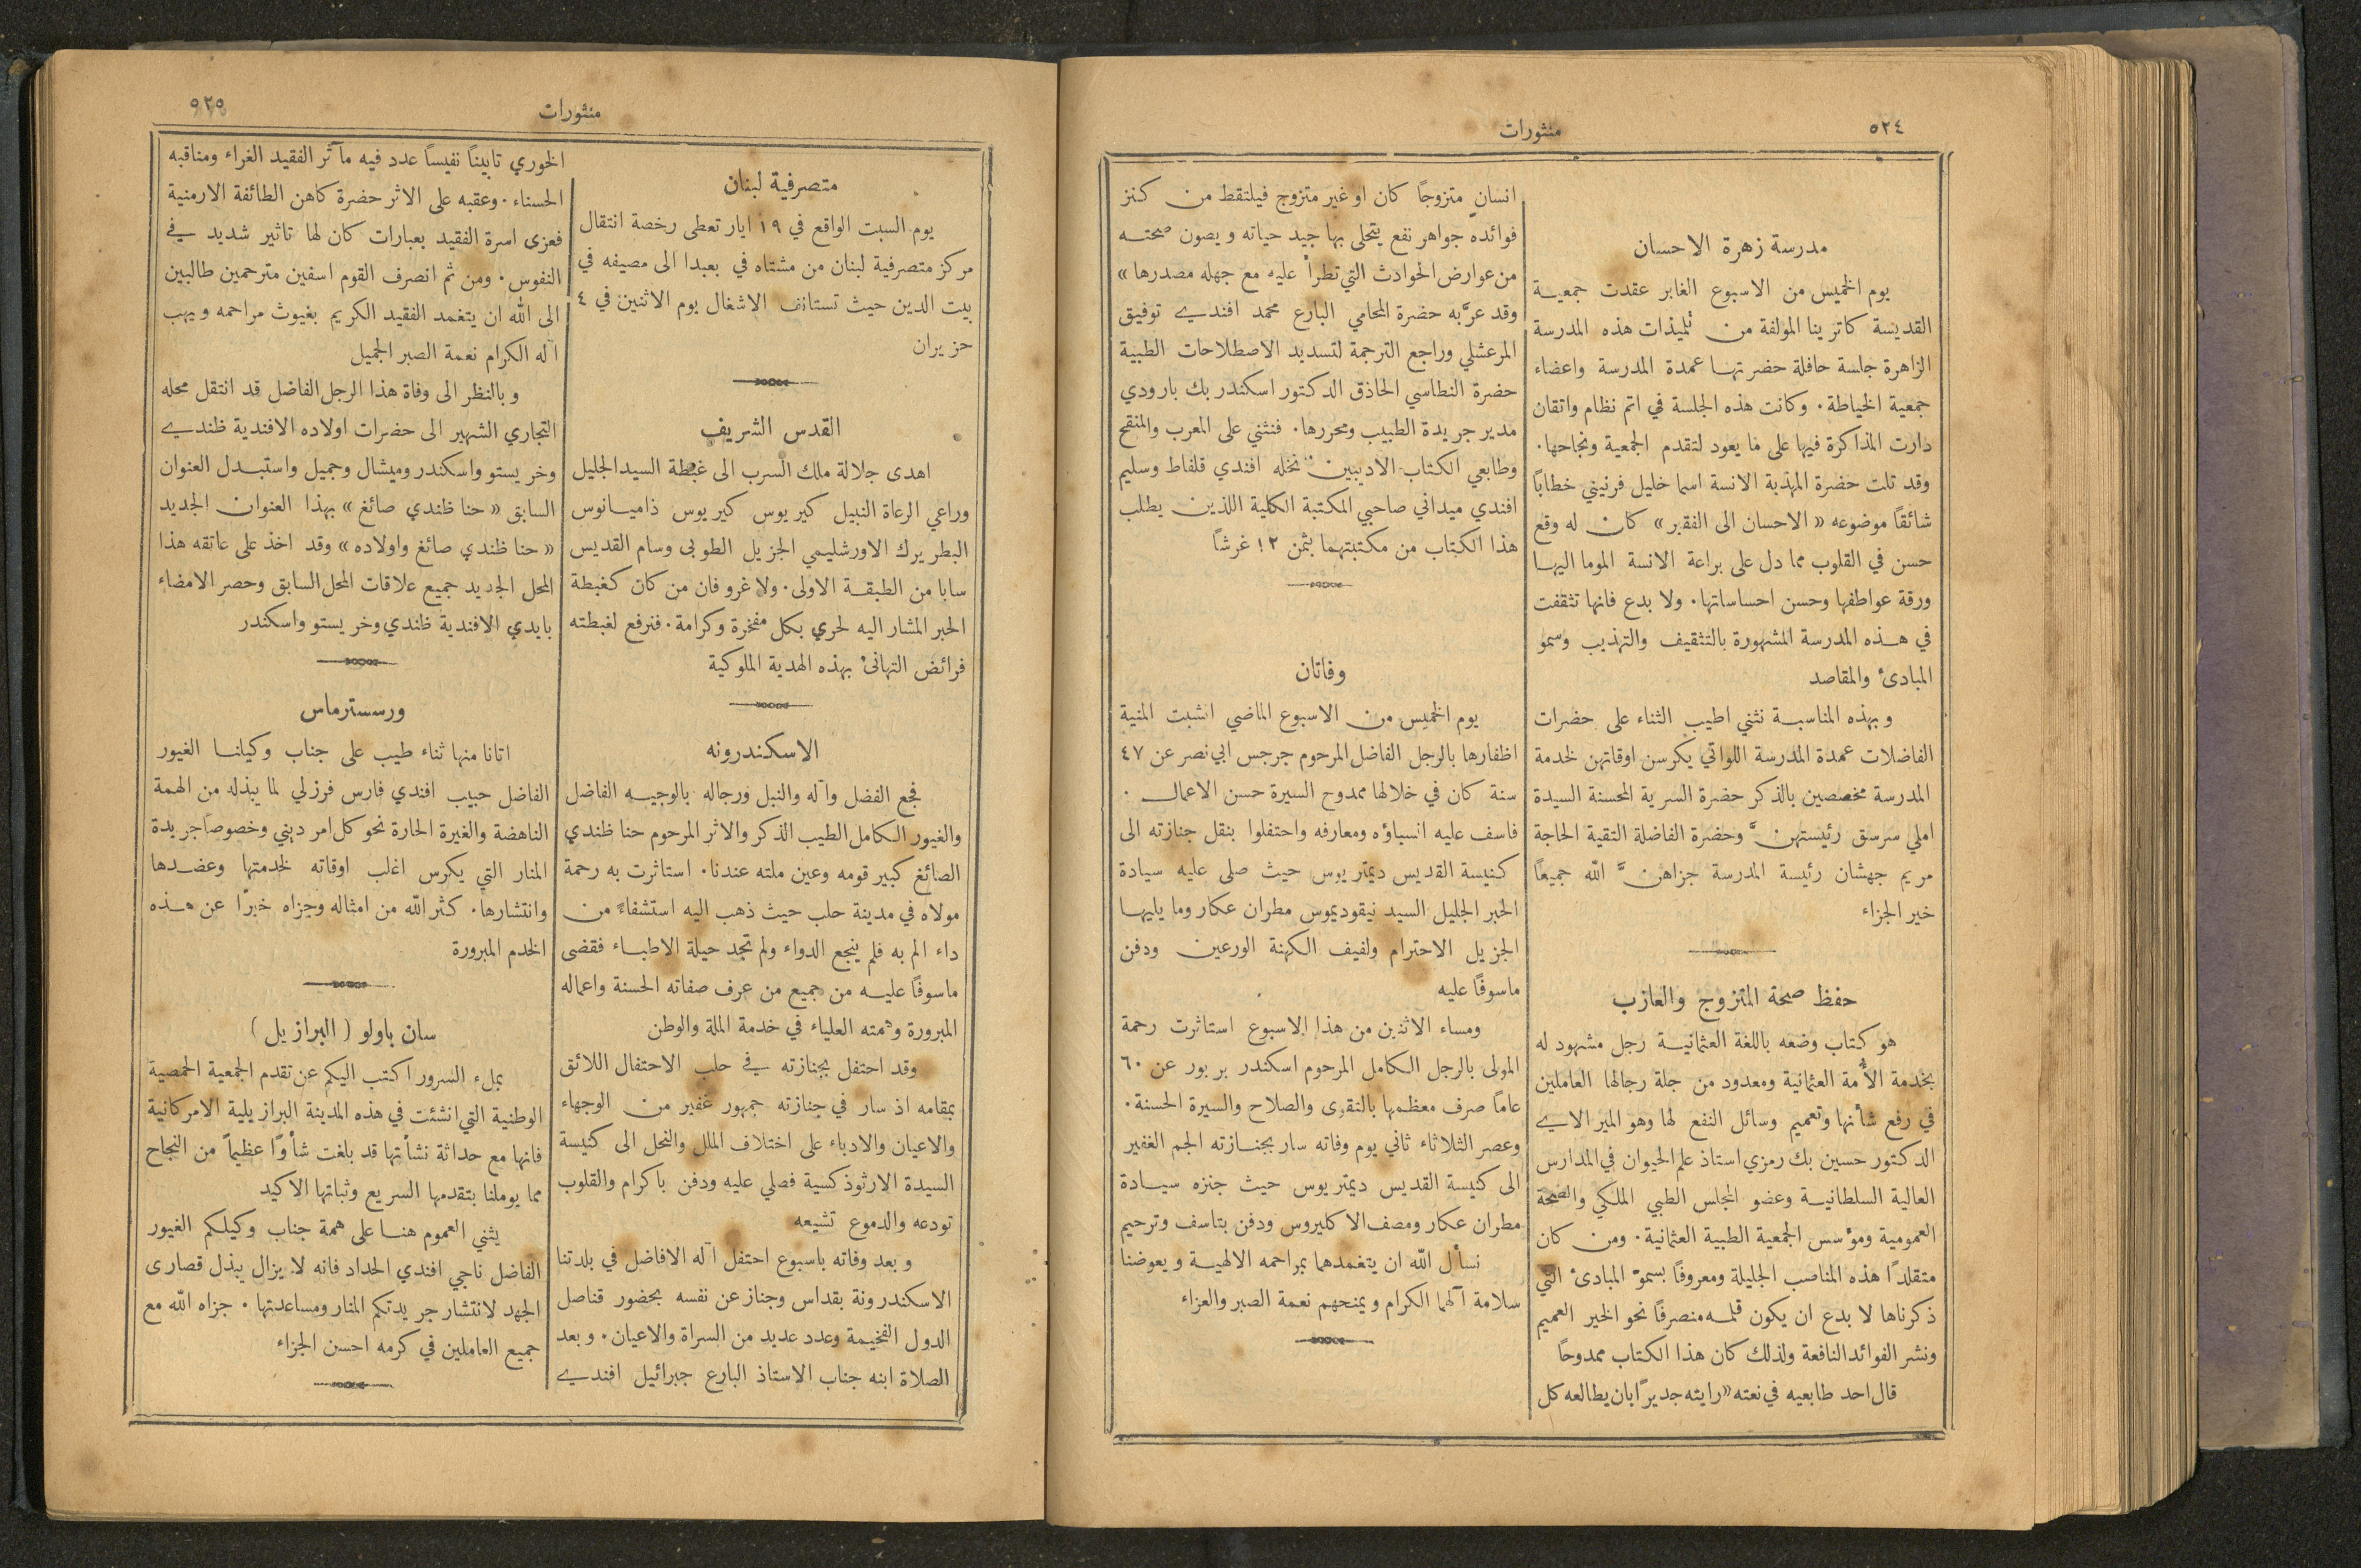 ٥٢٤
منثورات
مدرسة زهرة الاحسان
يوم الخميس من الاسبوع الغابر عقدت جمعية
القديسة كاترينا المؤلفة من تليذات هذه المدرسة
الزاهرة جلسة حافلة حضرتها عمدة المدرسة واعضاء
جمعية الخياطة. وكانت هذه الجلسة في اتم نظام واتقان
دارت المذاكرة فيها على ما يعود لتقدم الجمعية ونجاحها.
وقد تلت حضرة المهذبة الانسة اسما خليل فرنيني خطاباً
شائقاً موضوعه « الاحسان الى الفقير » كان له وقع
حسن في القلوب مما دل على براعة الانسة الموما اليها
ورقة عواطفها وحسن احساساتها. ولا بدع فانها تثقفت
في هذه المدرسة المشهورة بالتثقيف والتهذيب وسمو
المبادئ والمقاصد
وبهذه المناسبة نثني اطيب الثناء على حضرات
الفاضلات عمدة المدرسة اللواتي يكرسن اوقاتهن لخدمة
المدرسة مخصصين بالذكر حضرة السرية المحسنة السيدة
املي سرسق رئيستهنَّ وحضرة الفاضلة التقية الحاجة
مريم جهشان رئيسة المدرسة جزاهنَّ الله جميعاً
خير الجزاء
حفظ صحة المتزوج والعازب
هو كتاب وضعه باللغة العثمانية رجل مشهود له
بخدمة الأمة العثمانية ومعدود من جلة رجالها العاملين
في رفع شأنها وتعميم وسائل النفع لها وهو المير الاي
الدكتور حسين بك رمزي استاذ علم الحيوان في المدارس
العالية السلطانية وعضو المجلس الطبي الملكي والصحة
العمومية ومؤسس الجمعية الطبية العثمانية. ومن كان
متقلداً هذه المناصب الجليلة ومعروفاً بسموّ المبادئ التي
ذكرناها لا بدع ان يكون قلمه منصرفاً نحو الخير العميم
ونشر الفوائد النافعة ولذلك كان هذا الكتاب ممدوحاً
قال احد طابعيه في نعته « رايته جديراً بان يطالعه كل
انسانٍ متزوجاً كان او غير متزوج فيلتقط من كنز
فوائده جواهر نفع يتحلى بها جيد حياته ويصون صحته
من عوارض الحوادث التي تطرأ عليه مع جهله مصدرها »
وقد عرَّبه حضرة المحامي البارع محمد افندي توفيق
المرعشلي وراجع الترجمة لتسديد الاصطلاحات الطبية
حضرة النطاسي الحاذق الدكتور اسكندر بك بارودي
مدير جريدة الطبيب ومحررها. فنثني على المعرب والمنقح
وطابعي الكتاب الاديبين نخله افندي قلفاط وسليم
افندي ميداني صاحبي المكتبة الكلية اللذين يطلب
هذا الكتاب من مكتبتهما بثمن ١٢ غرشاً
وفاتان
يوم الخميس من الاسبوع الماضي انشبت المنية
اظفارها بالرجل الفاضل المرحوم جرجس ابي نصر عن ٤٧
سنة كان في خلالها ممدوح السيرة حسن الاعمال .
فاسف عليه انسباؤه ومعارفه واحتفلوا بنقل جنازته الى
كنيسة القديس ديمتريوس حيث صلى عليه سيادة
الحبر الجليل السيد نيقوديموس مطران عكار وما يليها
الجزيل الاحترام ولفيف الكهنة الورعين ودفن
ماسوفاً عليه
ومساء الاثنين من هذا الاسبوع استاثرت رحمة
المولى بالرجل الكامل المرحوم اسكندر بربور عن ٦٠
عاماً صرف معظمها بالتقوى والصلاح والسيرة الحسنة.
وعصر الثلاثاء ثاني يوم وفاته سار بجنازته الجم الغفير
الى كنيسة القديس ديمتريوس حيث جنزه سيادة
مطران عكار ومصف الاكليروس ودفن بتاسف وترحيم
نسأل الله ان يتغمدهما بمراحمه الالهية ويعوضنا
سلامة آلهما الكرام ويمنحهم نعمة الصبر والعزاء
منثورات
٥٢٥
متصرفية لبنان
يوم السبت الواقع في ١٩ ايار تعطى رخصة انتقال
مركز متصرفية لبنان من مشتاه في بعبدا الى مصيفه في
بيت الدين حيث تستانف الاشغال يوم الاثنين في ٤
حزيران
القدس الشريف
اهدى جلالة ملك السرب الى غبطة السيد الجليل
وراعي الرعاة النبيل كيريوس كيريوس ذاميانوس
البطريرك الاورشليمي الجزيل الطوبى وسام القديس
سابا من الطبقة الاولى. ولا غرو فان من كان كغبطة
الحبر المشار اليه لحري بكل مفخرة وكرامة. فنرفع لغبطته
فرائض التهانئ بهذه الهدية الملوكية
الاسكندرونه
فجع الفضل وآله والنبل ورجاله بالوجيه الفاضل
والغيور الكامل الطيب الذكر والاثر المرحوم حنا ظندي
الصائغ كبير قومه وعين ملته عندنا. استاثرت به رحمة
مولاه في مدينة حلب حيث ذهب اليه استشفاءً من
داء الم به فلم ينجع الدواء ولم تجد حيلة الاطباء فقضى
ماسوفاً عليه من جميع من عرف صفاته الحسنة واعماله
المبرورة وهمته العلياء في خدمة الملة والوطن
وقد احتفل بجنازته في حلب الاحتفال اللائق
بمقامه اذ سار في جنازته جمهور غفير من الوجهاء
والاعيان والادباء على اختلاف الملل والنحل الى كنيسة
السيدة الارثوذكسية فصلي عليه ودفن باكرام والقلوب
تودعه والدموع تشيعه
وبعد وفاته باسبوع احتفل آله الافاضل في بلدتنا
الاسكندرونة بقداس وجناز عن نفسه بحضور قناصل
الدول الفخيمة وعدد عديد من السراة والاعيان. وبعد
الصلاة ابنه جناب الاستاذ البارع جبرائيل افندي
الخوري تابيناً نفيساً عدد فيه مآثر الفقيد الغراء ومناقبه
الحسناء. وعقبه على الاثر حضرة كاهن الطائفة الارمنية
فعزى اسرة الفقيد بعبارات كان لها تاثير شديد في
النفوس. ومن ثم انصرف القوم اسفين مترحمين طالبين
الى الله ان يتغمد الفقيد الكريم بغيوث مراحمه ويهب
آله الكرام نعمة الصبر الجميل
وبالنظر الى وفاة هذا الرجل الفاضل قد انتقل محله
التجاري الشهير الى حضرات اولاده الافندية ظندي
وخريستو واسكندر وميشال وجميل واستبدل العنوان
السابق « حنا ظندي صائغ » بهذا العنوان الجديد
« حنا ظندي صائغ واولاده » وقد اخذ على عاتقه هذا
المحل الجديد جميع علاقات المحل السابق وحصر الامضاء
بايدي الافندية ظندي وخريستو واسكندر
ورسسترماس
اتانا منها ثناء طيب على جناب وكيلنا الغيور
الفاضل حبيب افندي فارس فرزلي لما يبذله من الهمة
الناهضة والغيرة الحارة نحو كل امر ديني وخصوصاً جريدة
المنار التي يكرس اغلب اوقاته لخدمتها وعضدها
وانتشارها. كثر الله من امثاله وجزاه خيراً عن هذه
الخدم المبرورة
سان باولو ( البرازيل )
بملء السرور اكتب اليكم عن تقدم الجمعية الحمصية
الوطنية التي انشئت في هذه المدينة البرازيلية الاميركانية
فانها مع حداثة نشأتها قد بلغت شأوًا عظيماً من النجاح
مما يوملنا بتقدمها السريع وثباتها الاكيد
يثني العموم هنا على همة جناب وكيلكم الغيور
الفاضل ناجي افندي الحداد فانه لا يزال يبذل قصارى
الجهد لانتشار جريدتكم المنار ومساعدتها. جزاه الله مع
جميع العاملين في كرمه احسن الجزاء